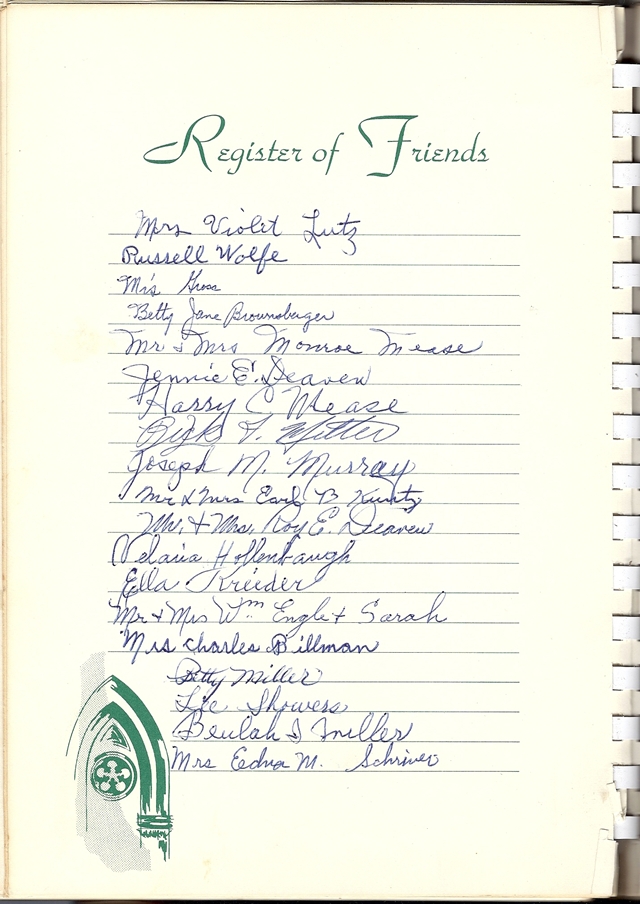 Register of Friends
Mrs Violet Lutz
Russell Wolfe
Mrs Gross
Betty Jane Brownsberger
Mr & Mrs Monroe Mease
Jennie E. Deaven
Harry C Mease
Joseph M. Murray
Mr & Mrs Earl B Kuntz
Mr. & Mrs. Roy E. Deaven
Hollenbaugh
Ella Kreider
Mr + Mrs Wm Engle + Sarah
Mrs Charles Billman
Betty Miller
Showers
Beulah I Miller
Mrs Eedna M. Schriver